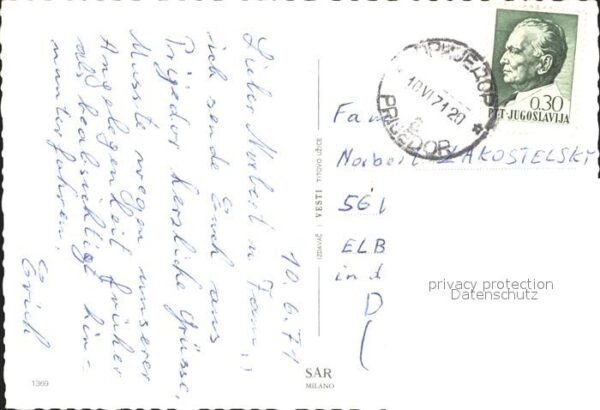 10.6.71
Lieber Norbert u. Fam.,
ich sende Euch aus
Prijedor herzliche Grüsse.
Musste wegen unserer
Angelegenheit früher
als beabsichtigt hin-
unterfahren.
Erich
1369
SAR
MILANO
IZDAVAČ VESTI TITOVO UŽICE
ПРИЈЕДОР
10 VI 71 20
PRIJEDOR
0.30
PTT-JUGOSLAVIJA
Fam
Norbert ZAKOSTELSKY
561
ELB
in d
D
privacy protection
Datenschutz